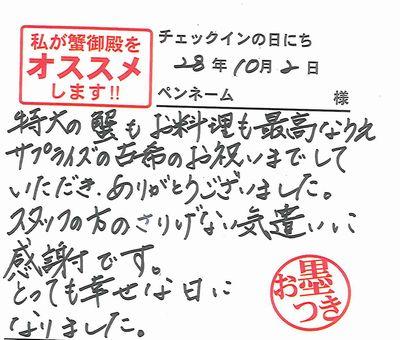 私が蟹御殿を
オススメ
します!!
チェックインの日にち
28年10月2日
ペンネーム 様
特大の蟹もお料理も最高なりえ
サプライズの古希のお祝いまでして
いただき、ありがとうございました。
スタッフの方のさりげない気遣いに
感謝です。
とっても幸せな日に
なりました。
お墨つき